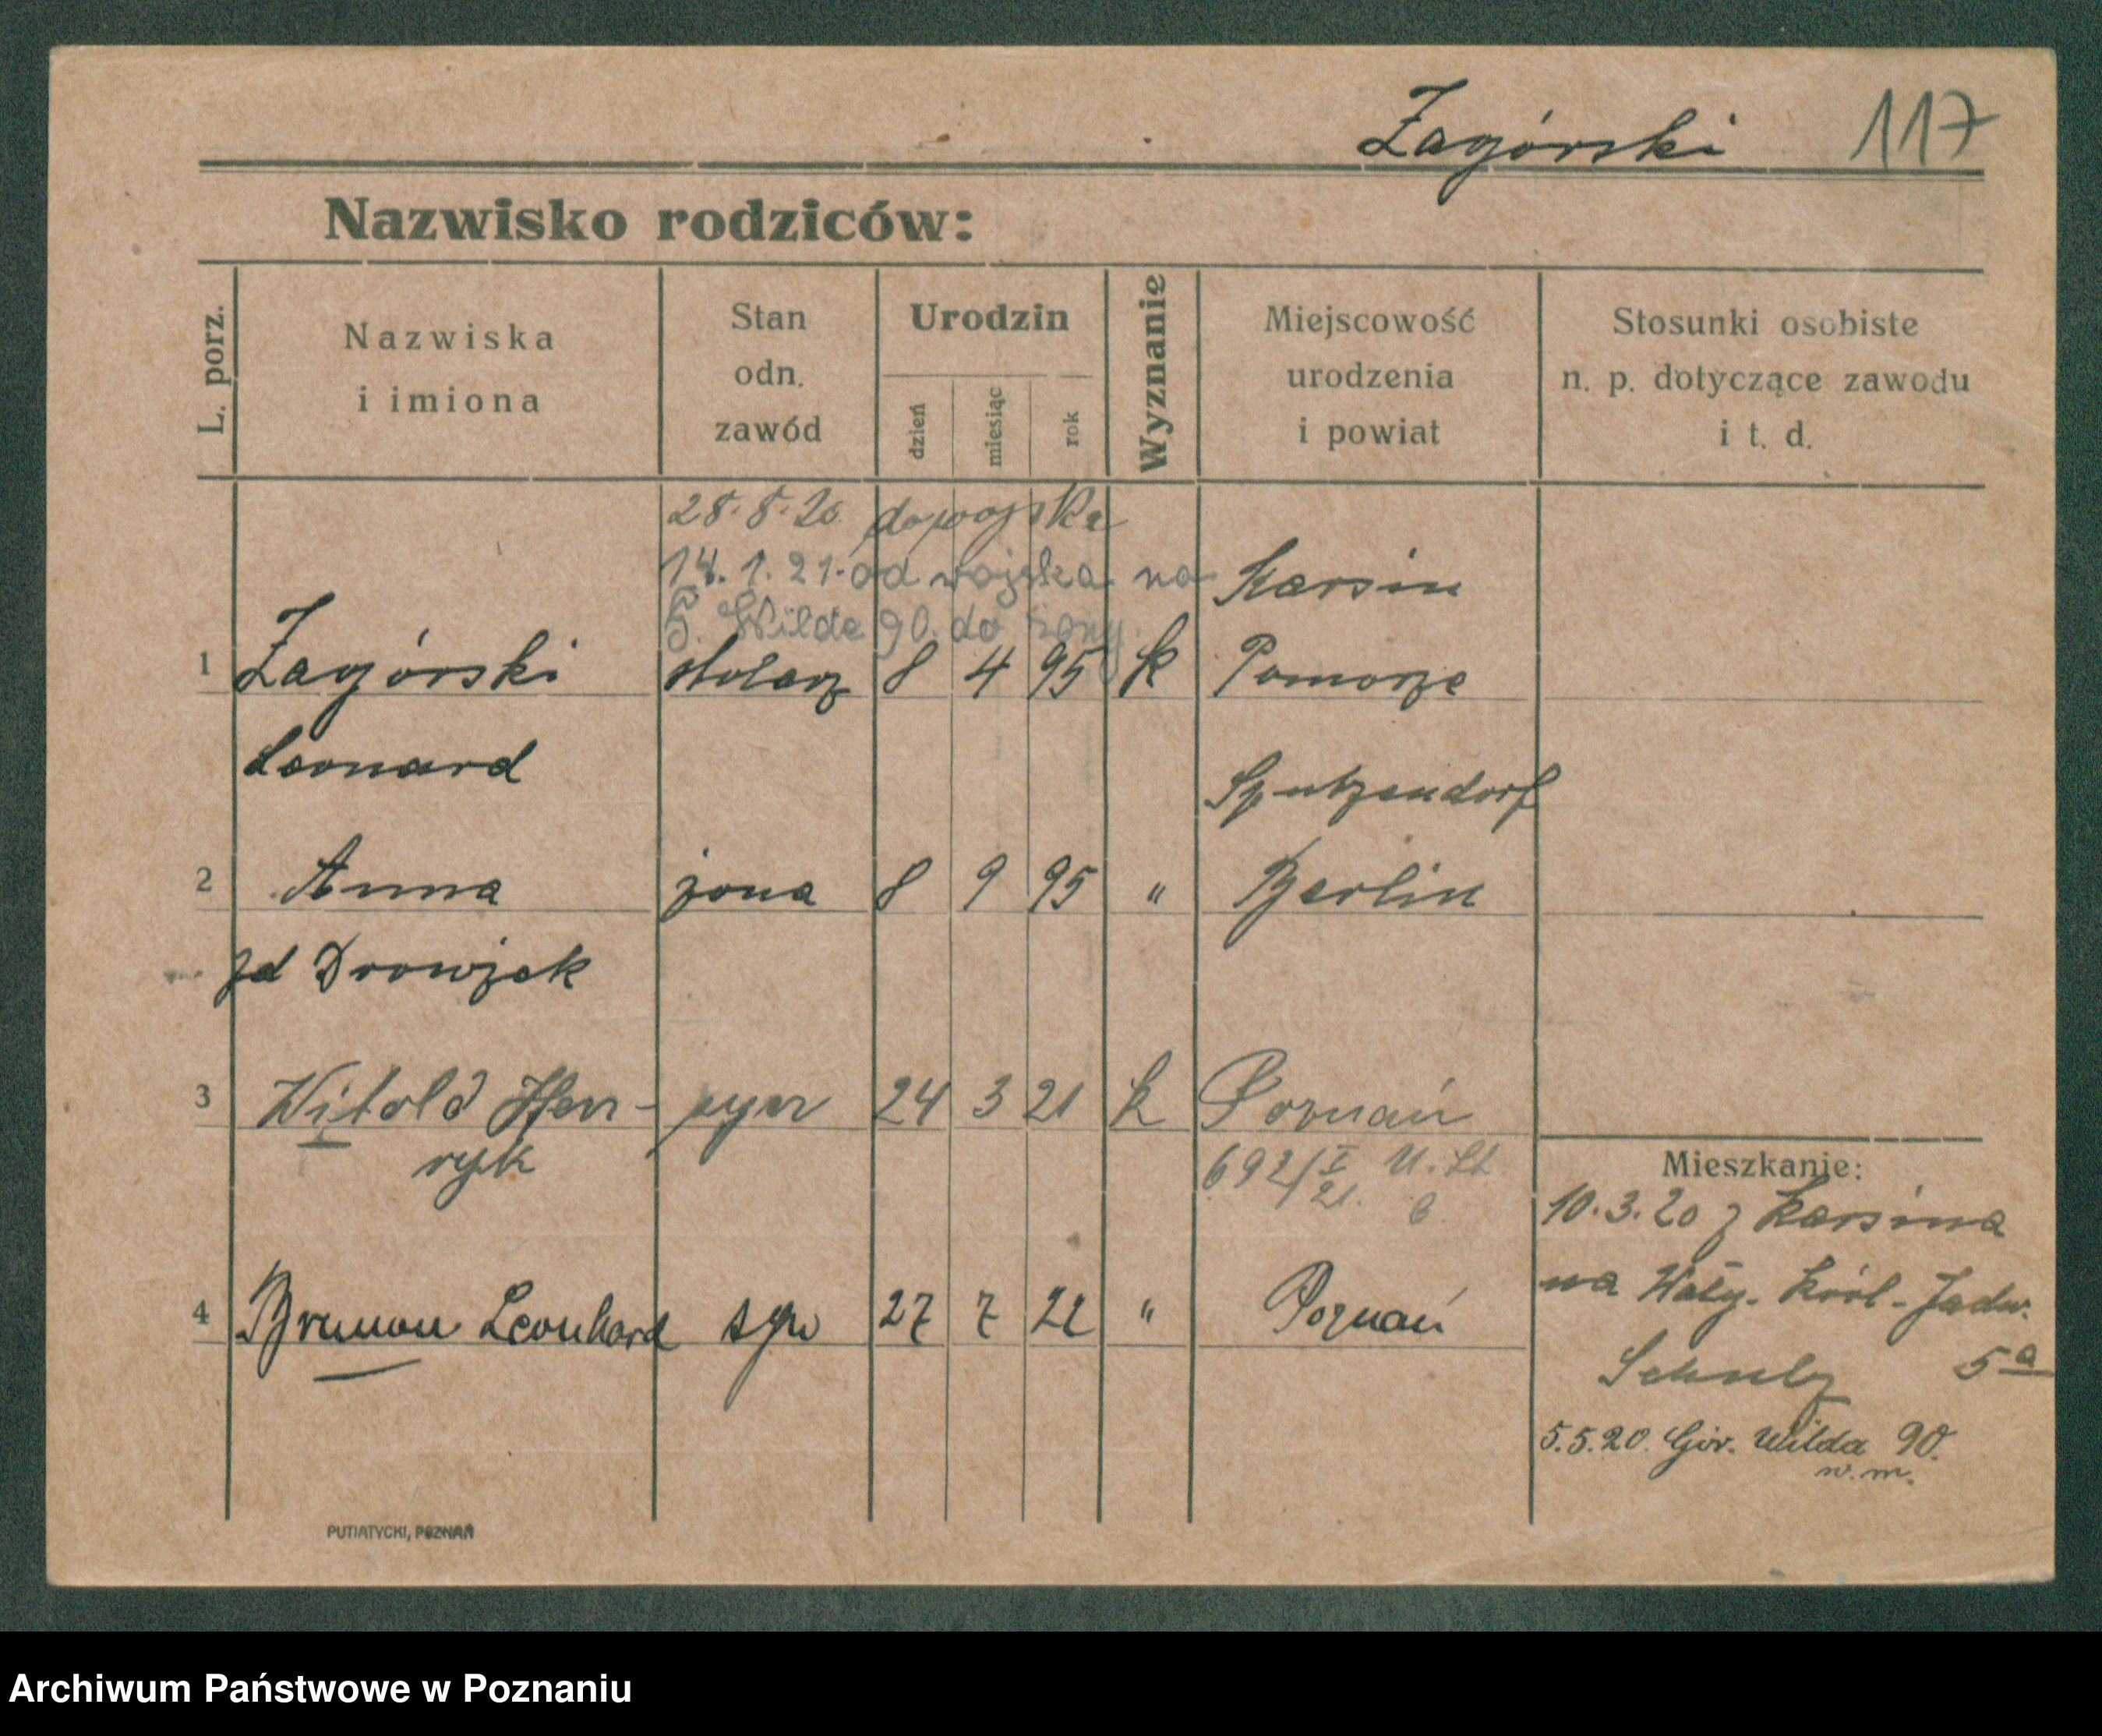 Zagórski 117
Nazwisko rodziców:
L. porz.
Nazwiska
i imiona
Stan
odn.
zawód
Urodzin
dzień
miesiąc
rok
Wyznanie
Miejscowość
urodzenia
i powiat
Stosunki osobiste
n. p. dotyczące zawodu
i t. d.
28.8.20. do wojska
14.1.21. od wojska na
G. Wilda 90. do żony.
Karsin
1 Zagórski stolarz 8 4 95 k Pomorze
Leonard
Sputzendorf
2 Anna żona 8 9 95 " Berlin
zd Drowzek
3 Witold Hen- syn 24 3 21 k Poznań
ryk
692/I 21. U. St
4 Brunon Leonhard syn 27 7 22 " Poznań
Mieszkanie:
10.3.20 z Karsina
na Wały. Król. Jadw.
Schulz 5a
5.5.20. Gór. Wilda 90.
w. m.
PUTIATYCKI, POZNAŃ
Archiwum Państwowe w Poznaniu